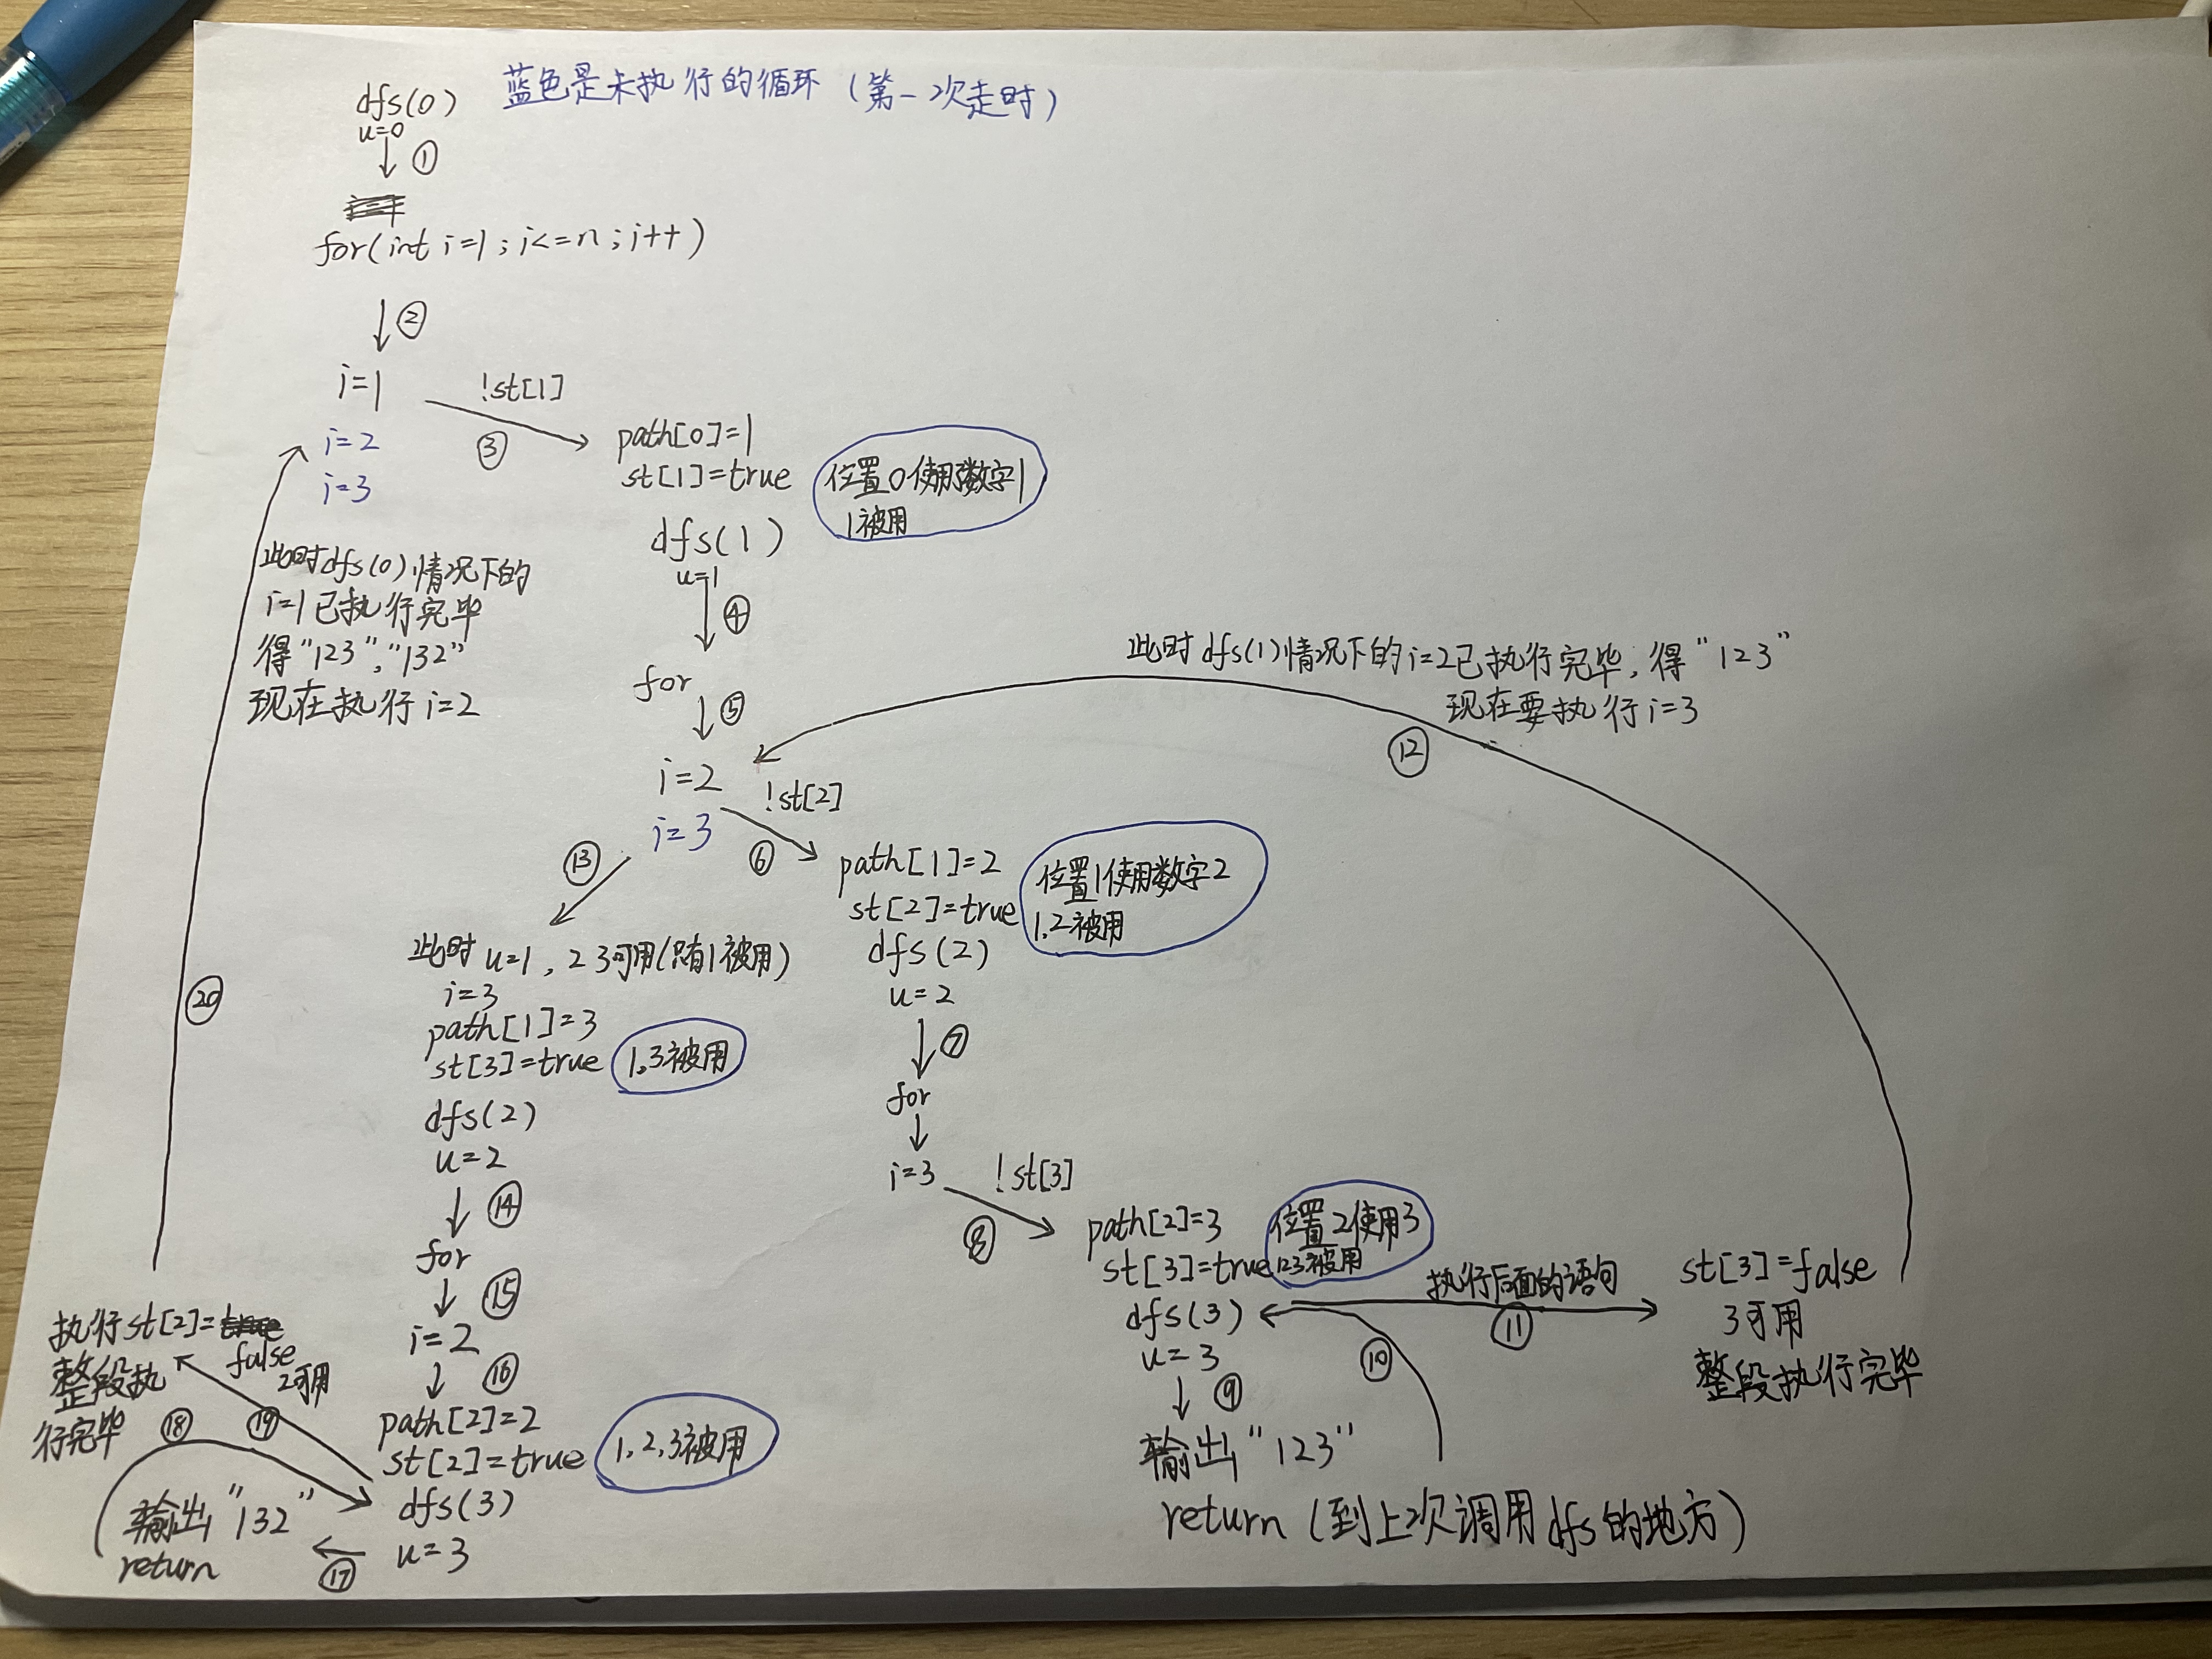 dfs(0)
蓝色是未执行的循环（第一次走时）
u=0
①
for(int i=1;i<=n;i++)
②
i=1
!st[1]
③
i=2
i=3
path[0]=1
st[1]=true
位置0使用了数字1
1被用
dfs(1)
u=1
④
此时dfs(0)情况下的
i=1已执行完毕
得"123","132"
现在执行i=2
for
⑤
此时dfs(1)情况下的i=2已执行完毕,得"123"
现在要执行i=3
⑫
i=2
!st[2]
i=3
⑬
⑥
path[1]=2
st[2]=true
位置1使用数字2
1.2被用
dfs(2)
u=2
⑦
for
i=3
!st[3]
⑧
此时u=1,2 3可用(只有1被用)
i=3
path[1]=3
st[3]=true
1.3被用
dfs(2)
u=2
⑭
for
⑮
i=2
⑯
⑳
path[2]=3
st[3]=true
位置2使用3
123被用
dfs(3)
u=3
⑨
⑩
执行后面的语句
⑪
st[3]=false
3可用
整段执行完毕
输出"123"
return(到上次调用dfs的地方)
path[2]=2
st[2]=true
1.2,3被用
dfs(3)
u=3
⑰
输出"132"
return
⑱
⑲
执行st[2]=true
false
2可用
整段执
行完毕